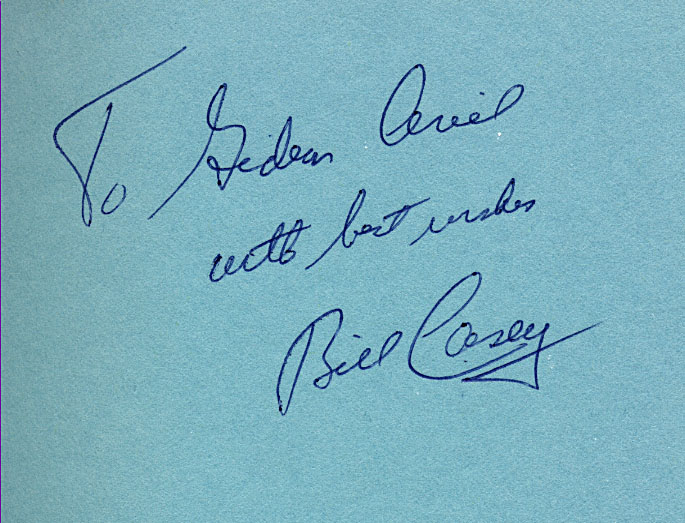 To Gideon Ariel
with best wishes
Bill Casey